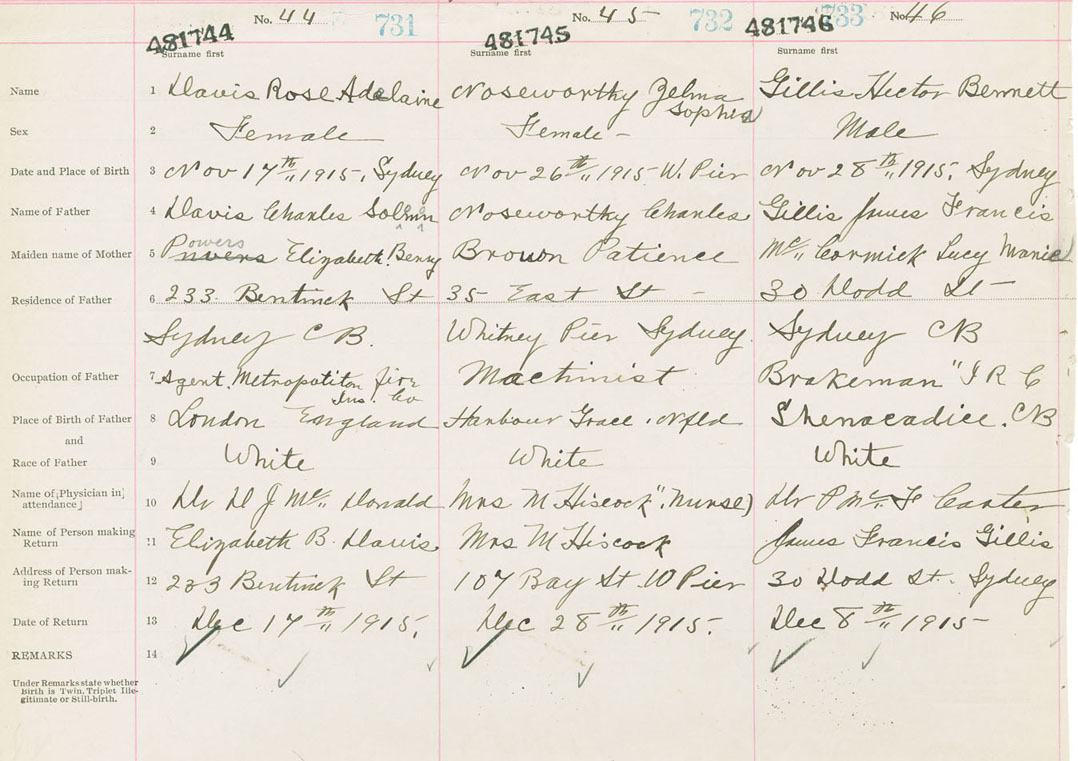 No. 44 731 No. 45 732 No. 46 733
481744 481745 481746
Surname first Surname first Surname first
Name 1 Davis Rose Adelaine Noseworthy Zelma Sophia Gillis Hector Bennett
Sex 2 Female Female - Male
Date and Place of Birth 3 Nov 17th 1915, Sydney Nov 26th 1915 W. Pier Nov 28th 1915, Sydney
Name of Father 4 Davis Charles Noseworthy Charles Gillis James Francis
Maiden name of Mother 5 Powers Elizabeth Berry Brown Patience Mc Cormick Lucy Marie
Residence of Father 6 233 Bentinck St 35 East St - 30 Dodd St -
Sydney CB. Whitney Pier Sydney. Sydney CB
Occupation of Father 7 Agent Metropoliton fire Ins. Co Machinist Brakeman "I R C
Place of Birth of Father 8 London England Harbour Grace, Nfld Shenacadiee. CB
and
Race of Father 9 White White White
Name of [Physician in attendance] 10 Dr D J Mc Donald Mrs M Hiscock "Nurse) Dr P Mc F Carter
Name of Person making Return 11 Elizabeth B. Davis Mrs M Hiscock James Francis Gillis
Address of Person making Return 12 233 Bentinck St 107 Bay St. W Pier 30 Dodd St. Sydney
Date of Return 13 Dec 17th 1915. Dec 28th 1915. Dec 8th 1915
REMARKS 14
Under Remarks state whether
Birth is Twin, Triplet Ille-
gitimate or Still-birth.